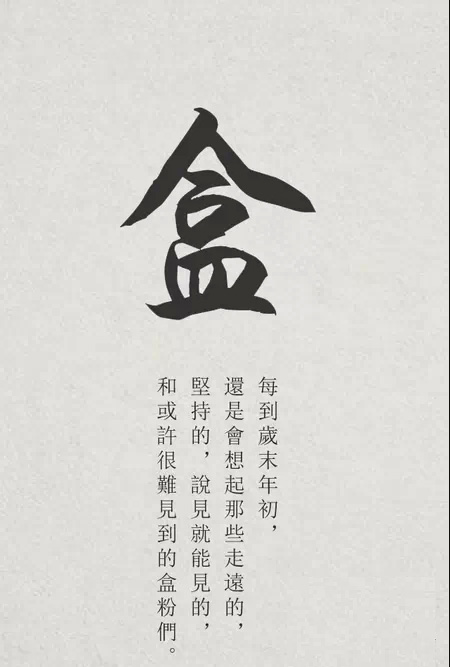 盒
每到歲末年初，
還是會想起那些走遠的，
堅持的，說見就能見的，
和或許很難見到的盒粉們。